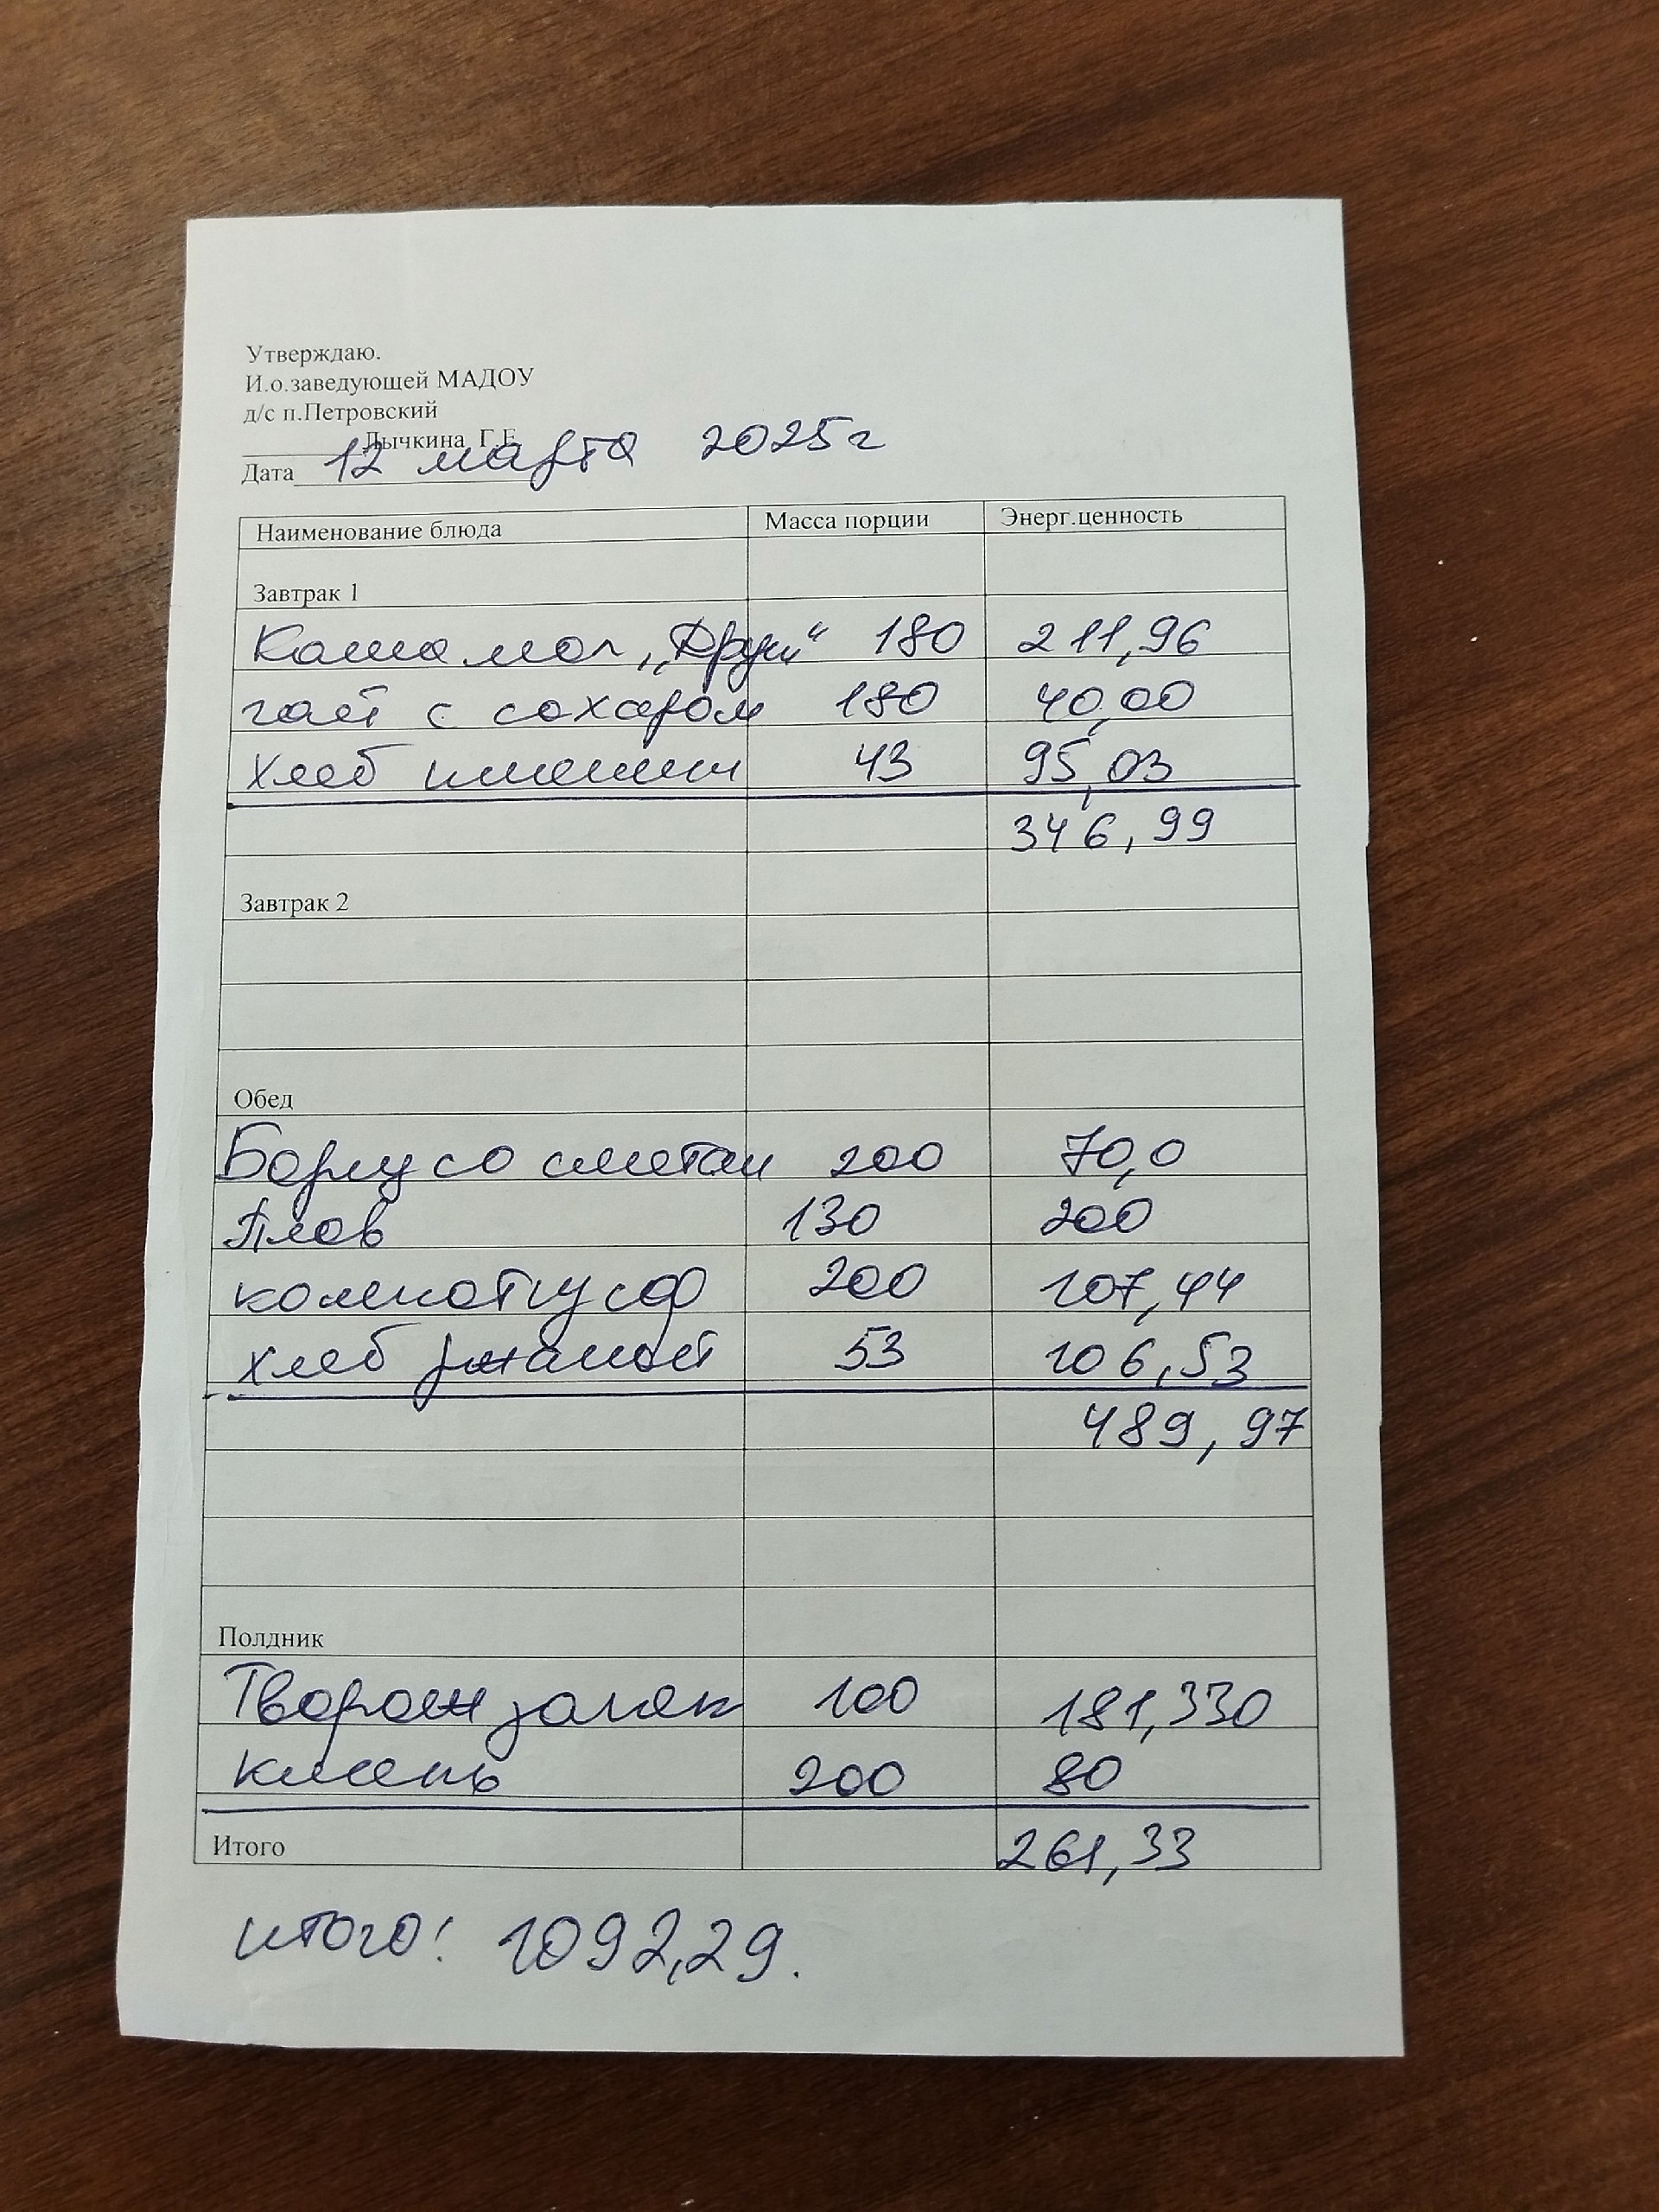 Утверждаю.
И.о.заведующей МАДОУ
д/с п.Петровский
Лычкина Г.Е.
Дата 12 марта 2025г
Наименование блюда Масса порции Энерг.ценность
Завтрак 1
Каша мол „Друж“ 180 211,96
чай с сахаром 180 40,00
Хлеб пшенич 43 95,03
346,99
Завтрак 2
Обед
Борщ со сметан 200 70,0
Плов 130 200
компот из сф 200 107,44
хлеб ржаной 53 106,53
489,97
Полдник
Творож запек 100 181,330
кисель 200 80
Итого 261,33
итого: 1092,29.